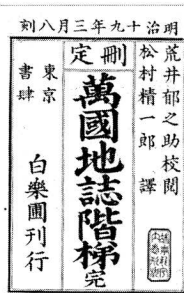 明治十九年三月八刻
荒井郁之助校閲
松村精一郎 譯
刪定
萬國地誌階梯 完
東京
書肆
白樂圃刊行